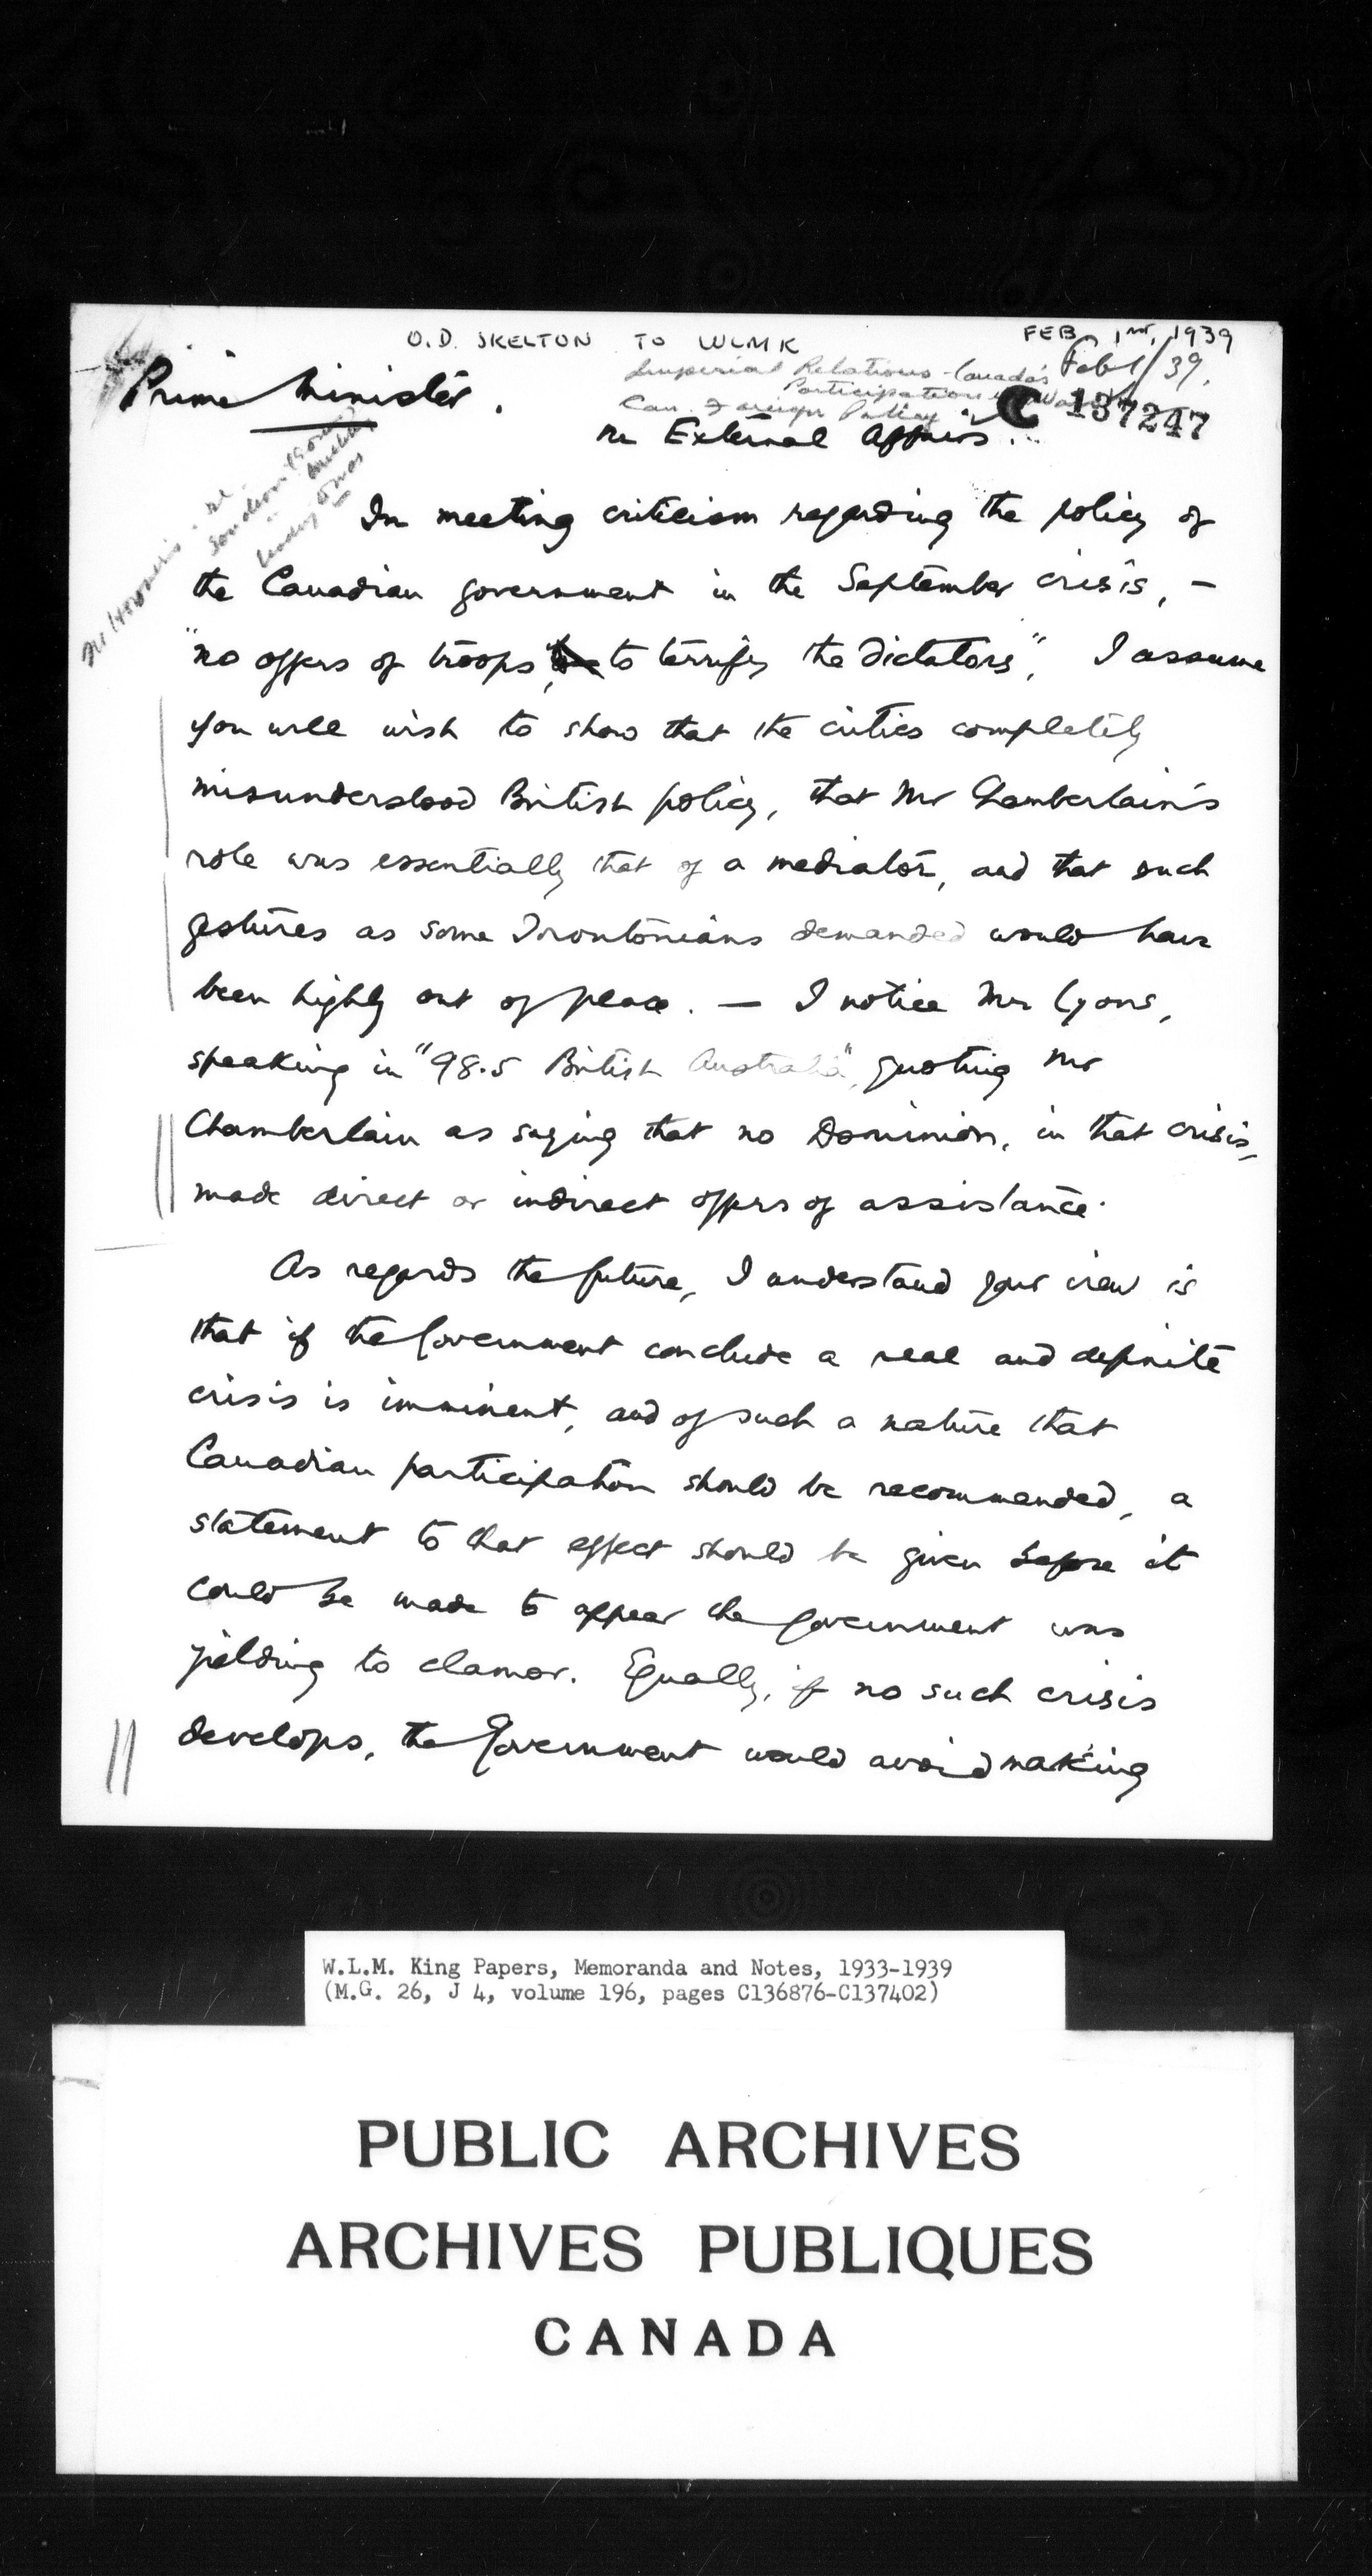 O.D. SKELTON TO WLMK
FEB 1st, 1939
Imperial Relations - Canada's
Participation in War
Can. Foreign Policy
Feb 1/39.
C 137247
Prime Minister.
re External Affairs.
In meeting criticism regarding the policy of
the Canadian government in the September crisis, –
"no offers of troops", to terrify the dictators", I assume
you will wish to show that the critics completely
misunderstood British policy, that Mr Chamberlain's
role was essentially that of a mediator, and that such
gestures as some Torontonians demanded would have
been highly out of place. — I notice Mr Lyons,
speaking in "98.5 British Australia", quoting Mr
Chamberlain as saying that no Dominion, in that crisis,
made direct or indirect offers of assistance.
As regards the future, I understand your view is
that if the Government conclude a real and definite
crisis is imminent, and of such a nature that
Canadian participation should be recommended, a
statement to that effect should be given before it
could be made to appear the government was
yielding to clamor. Equally, if no such crisis
develops, the Government would avoid making
W.L.M. King Papers, Memoranda and Notes, 1933-1939
(M.G. 26, J 4, volume 196, pages C136876-C137402)
PUBLIC ARCHIVES
ARCHIVES PUBLIQUES
CANADA